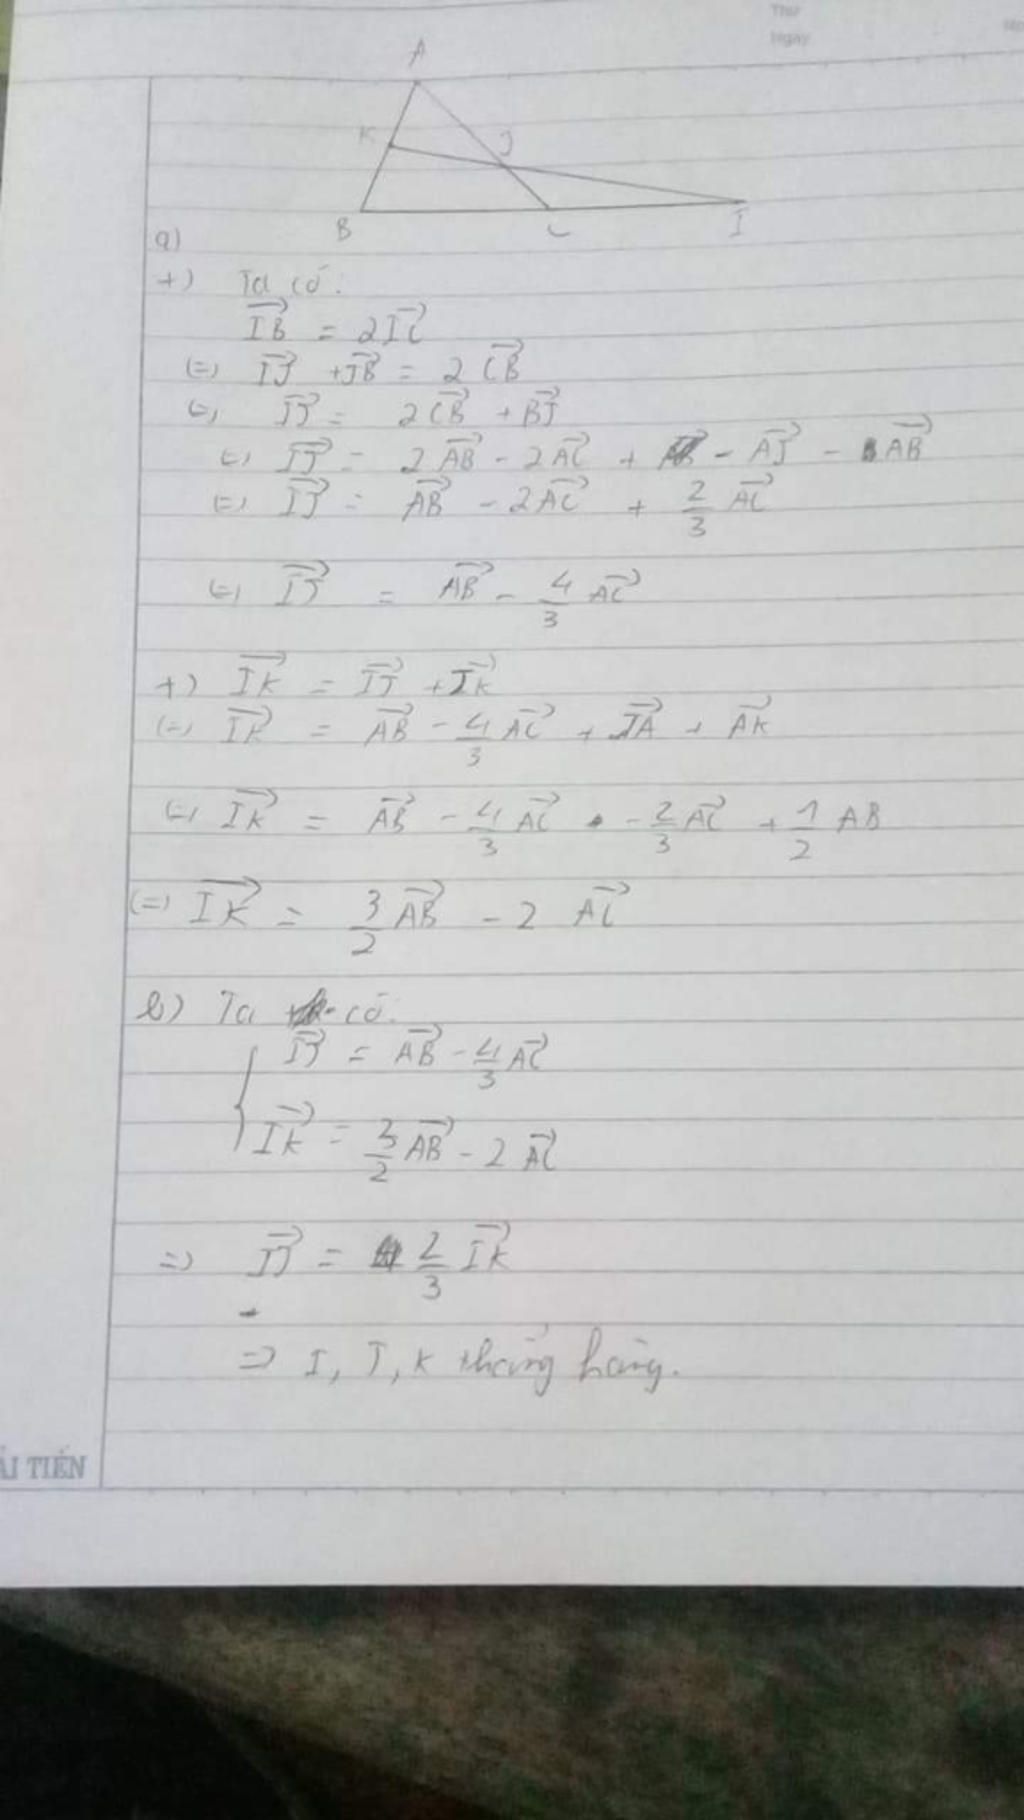 Thứ
Ngày
A
K
J
B
C
I
a)
+) Ta có:
$\overrightarrow{IB} = 2\overrightarrow{IC}$
(=) $\overrightarrow{IJ} + \overrightarrow{JB} = 2\overrightarrow{CB}$
(=) $\overrightarrow{IJ} = 2\overrightarrow{CB} + \overrightarrow{BJ}$
(=) $\overrightarrow{IJ} = 2\overrightarrow{AB} - 2\overrightarrow{AC} + - \overrightarrow{AJ} - \overrightarrow{AB}$
(=) $\overrightarrow{IJ} = \overrightarrow{AB} - 2\overrightarrow{AC} + \frac{2}{3}\overrightarrow{AC}$
(=) $\overrightarrow{IJ} = \overrightarrow{AB} - \frac{4}{3}\overrightarrow{AC}$
+) $\overrightarrow{IK} = \overrightarrow{IJ} + \overrightarrow{JK}$
(=) $\overrightarrow{IK} = \overrightarrow{AB} - \frac{4}{3}\overrightarrow{AC} + \overrightarrow{JA} + \overrightarrow{AK}$
(=) $\overrightarrow{IK} = \overrightarrow{AB} - \frac{4}{3}\overrightarrow{AC} - \frac{2}{3}\overrightarrow{AC} + \frac{1}{2}AB$
(=) $\overrightarrow{IK} = \frac{3}{2}\overrightarrow{AB} - 2\overrightarrow{AC}$
b) Ta có:
$\overrightarrow{IJ} = \overrightarrow{AB} - \frac{4}{3}\overrightarrow{AC}$
$\overrightarrow{IK} = \frac{3}{2}\overrightarrow{AB} - 2\overrightarrow{AC}$
=> $\overrightarrow{IJ} = \frac{2}{3}\overrightarrow{IK}$
=> I, J, K thẳng hàng.
ẢI TIẾN